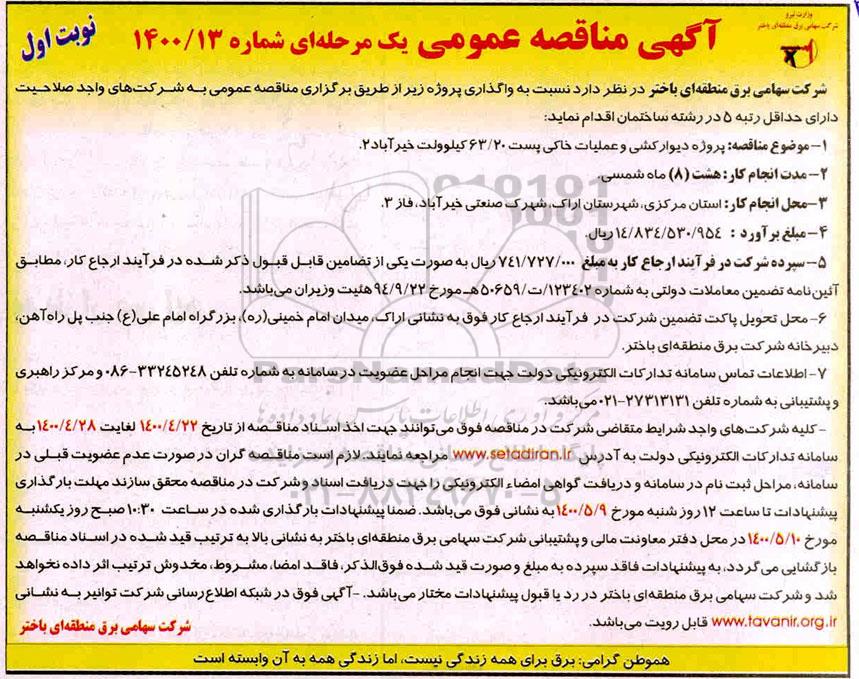 وزارت نیرو
شرکت سهامی برق منطقه‌ای باختر
آگهی مناقصه عمومی یک مرحله‌ای شماره ۱۴۰۰/۱۳
نوبت اول
شرکت سهامی برق منطقه‌ای باختر در نظر دارد نسبت به واگذاری پروژه زیر از طریق برگزاری مناقصه عمومی به شرکت‌های واجد صلاحیت
دارای حداقل رتبه ۵ در رشته ساختمان اقدام نماید:
۱- موضوع مناقصه: پروژه دیوارکشی و عملیات خاکی پست ۶۳/۲۰ کیلوولت خیرآباد۲.
۲- مدت انجام کار: هشت (۸) ماه شمسی.
۳- محل انجام کار: استان مرکزی، شهرستان اراک، شهرک صنعتی خیرآباد، فاز ۳.
۴- مبلغ برآورد : ۱۴/۸۳۴/۵۳۰/۹۵۴ ریال.
۵- سپرده شرکت در فرآیند ارجاع کار به مبلغ ۷۴۱/۷۲۷/۰۰۰ ریال به صورت یکی از تضامین قابل قبول ذکر شده در فرآیند ارجاع کار، مطابق
آئین‌نامه تضمین معاملات دولتی به شماره ۱۲۳۴۰۲/ت/۵۰۶۵۹هـ مورخ ۹۴/۹/۲۲ هئیت وزیران می‌باشد.
۶- محل تحویل پاکت تضمین شرکت در فرآیند ارجاع کار فوق به نشانی اراک، میدان امام خمینی(ره)، بزرگراه امام علی(ع) جنب پل راه‌آهن،
دبیرخانه شرکت برق منطقه‌ای باختر.
۷- اطلاعات تماس سامانه تدارکات الکترونیکی دولت جهت انجام مراحل عضویت در سامانه به شماره تلفن ۳۳۲۴۵۲۴۸-۰۸۶ و مرکز راهبری
و پشتیبانی به شماره تلفن ۲۷۳۱۳۱۳۱-۰۲۱ می‌باشد.
-کلیه شرکت‌های واجد شرایط متقاضی شرکت در مناقصه فوق می‌توانند جهت اخذ اسناد مناقصه از تاریخ ۱۴۰۰/۴/۲۲ لغایت ۱۴۰۰/۴/۲۸ به
سامانه تدارکات الکترونیکی دولت به آدرس www.setadiran.ir مراجعه نمایند. لازم است مناقصه گران در صورت عدم عضویت قبلی در
سامانه، مراحل ثبت نام در سامانه و دریافت گواهی امضاء الکترونیکی را جهت دریافت اسناد و شرکت در مناقصه محقق سازند. مهلت بارگذاری
پیشنهادات تا ساعت ۱۲ روز شنبه مورخ ۱۴۰۰/۵/۹ به نشانی فوق می‌باشد. ضمنا پیشنهادات بارگذاری شده در ساعت ۱۰:۳۰ صبح روز یکشنبه
مورخ ۱۴۰۰/۵/۱۰ در محل دفتر معاونت مالی و پشتیبانی شرکت سهامی برق منطقه‌ای باختر به نشانی بالا به ترتیب قید شده در اسناد مناقصه
بازگشایی می‌گردد، به پیشنهادات فاقد سپرده به مبلغ و صورت قید شده فوق‌الذکر، فاقد امضا، مشروط، مخدوش ترتیب اثر داده نخواهد
شد و شرکت سهامی برق منطقه‌ای باختر در رد یا قبول پیشنهادات مختار می‌باشد. -آگهی فوق در شبکه اطلاع‌رسانی شرکت توانیر به نشانی
www.tavanir.org.ir قابل رویت می‌باشد.
شرکت سهامی برق منطقه‌ای باختر
هموطن گرامی: برق برای همه زندگی نیست، اما زندگی همه به آن وابسته است
ParsNamadData
۰۲۱-۸۸۳۴۹۶۷۰-۵